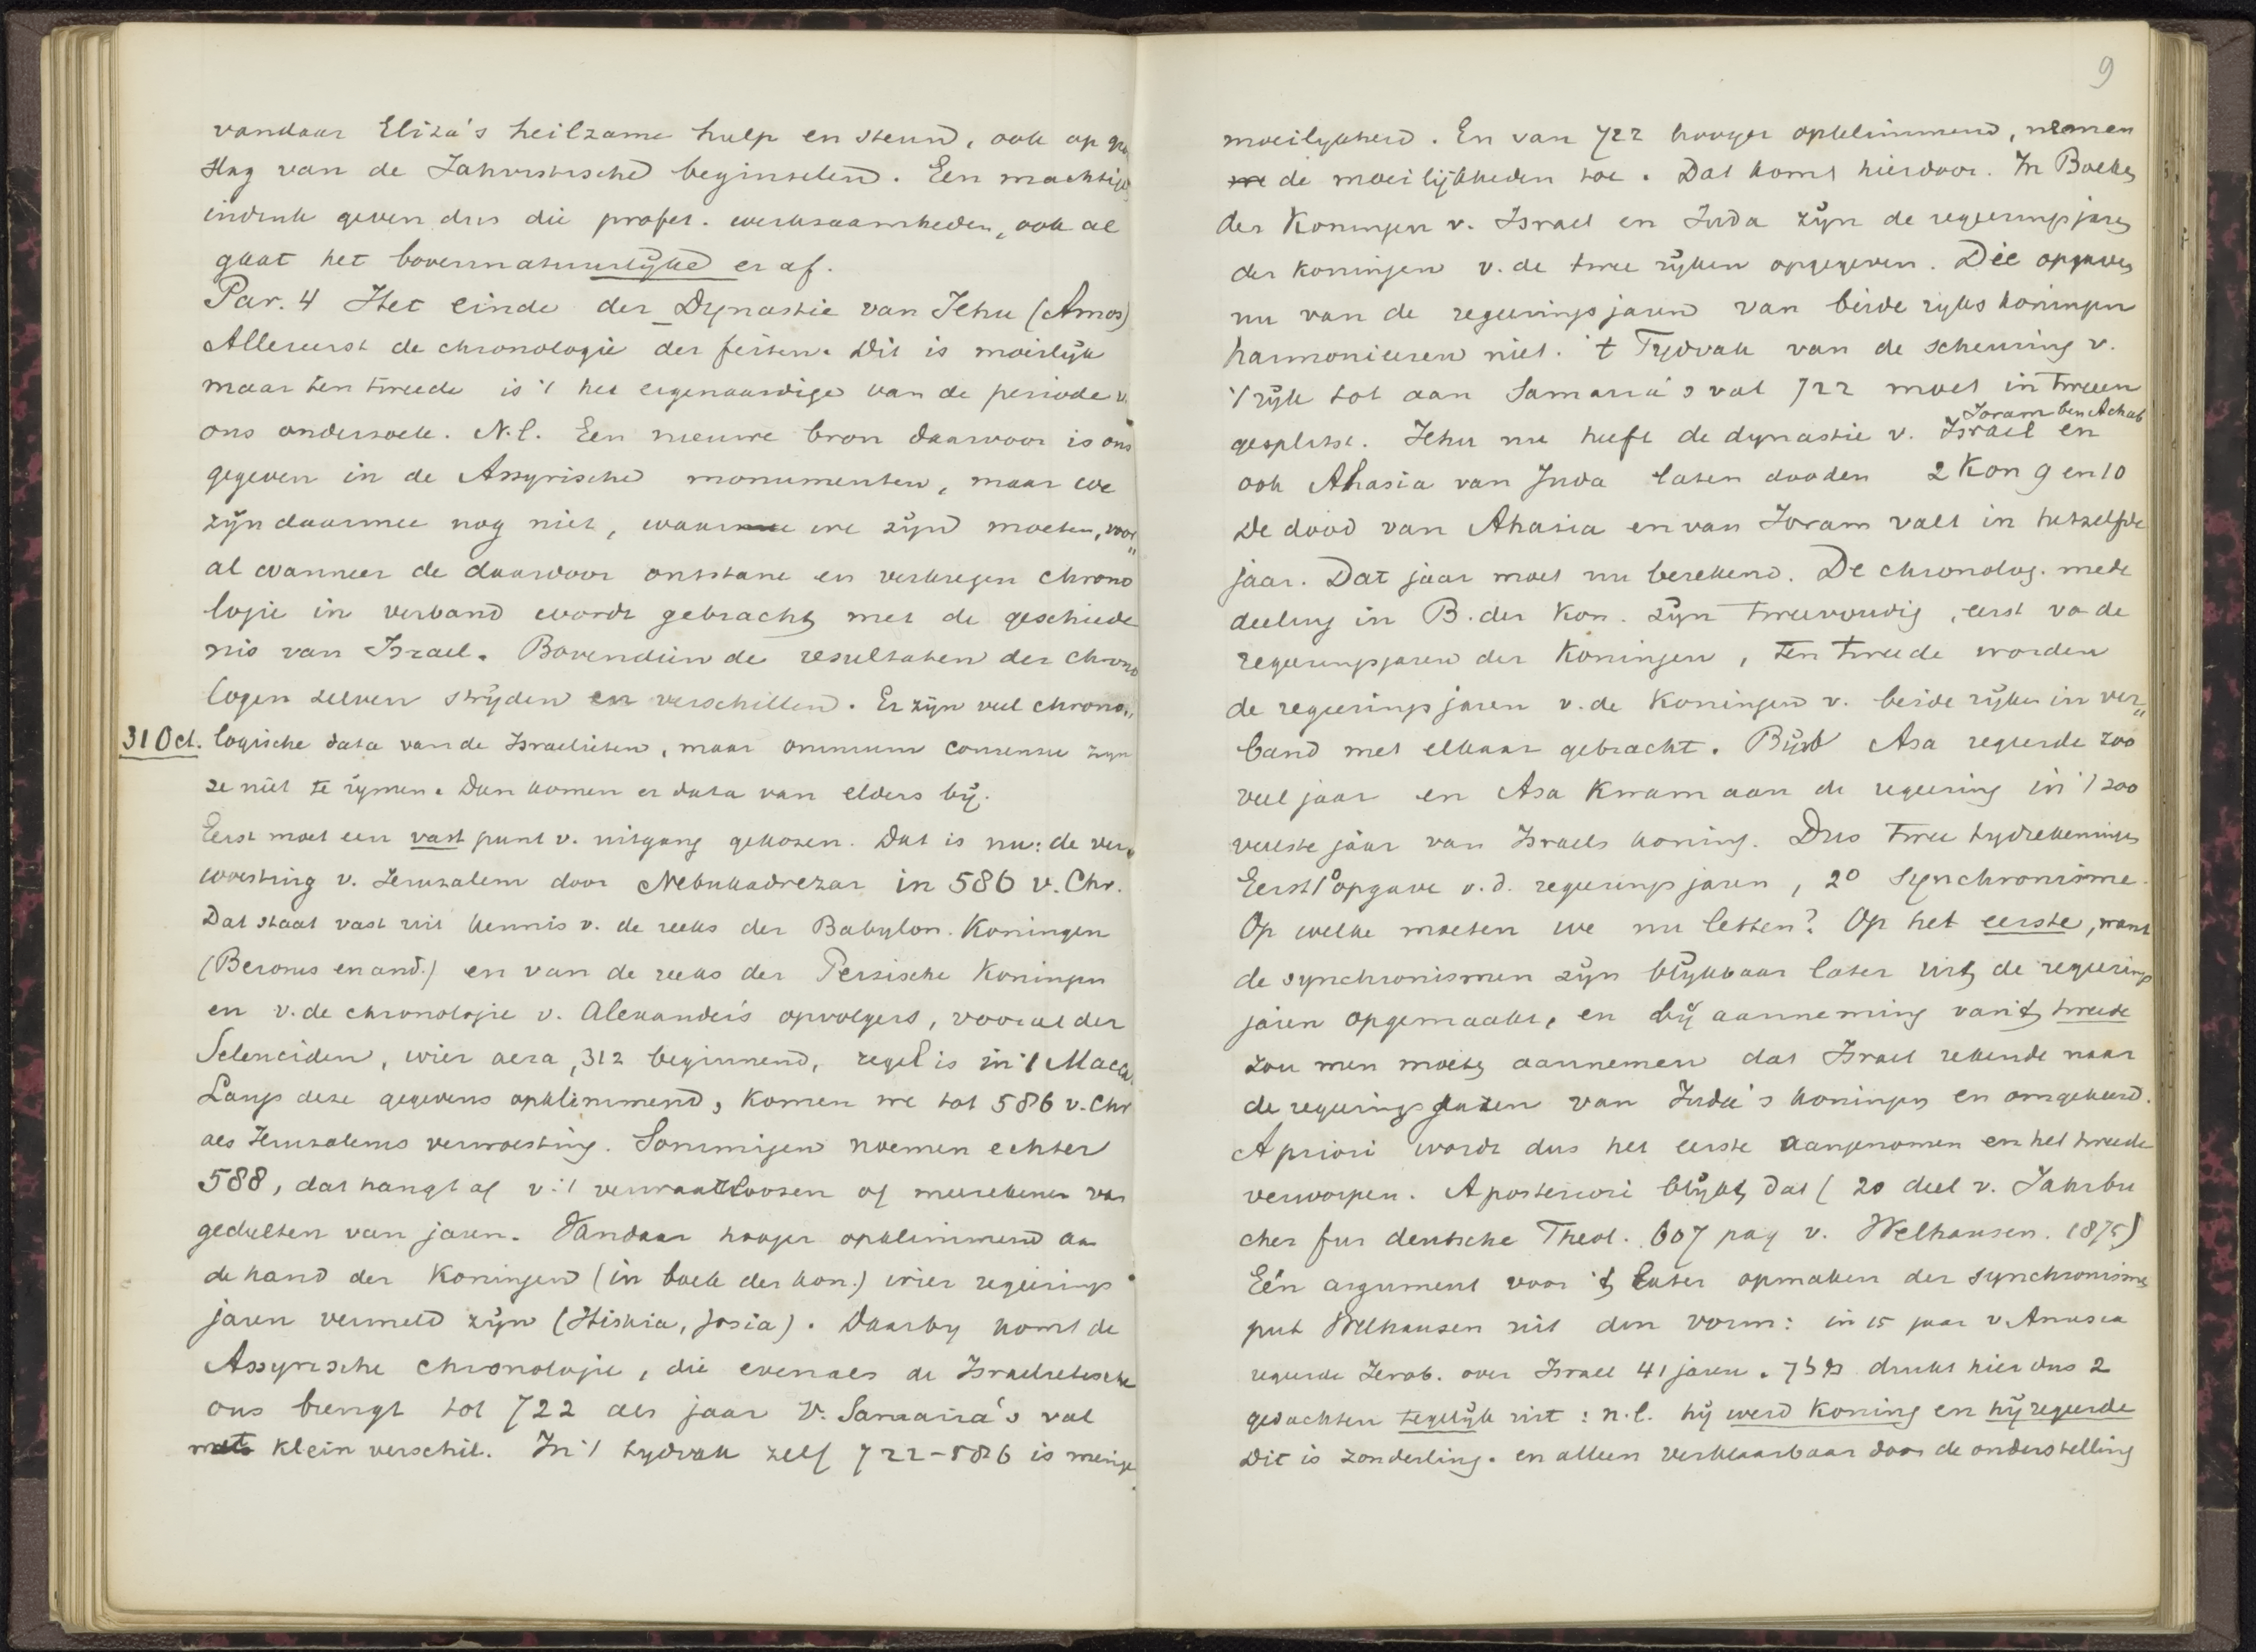 vandaar Eliza's heilzame hulp en steun, ook op
slag van de Jahvistische beginselen. Een machtige
indruk geven dus die profet. werkzaamheden, ook al
gaat het bovennatuurlijke er af.
Par. 4 Het einde der Dynastie van Jehu (Amos)
Allereerst de chronologie der feiten. Dit is moeilijk
maar ten tweede is 't het eigenaardige van de periode v.
ons onderzoek. N.l. Een nieuwe bron daarvoor is ons
gegeven in de Assyrische monumenten, maar we
zijn daarmee nog niet, waar we zijn moeten, voor„
al wanneer de daardoor ontstane en verkregen chrono
logie in verband wordt gebracht met de geschiede
nis van Israel. Bovendien de resultaten der chrono
logen zelven strijden en verschillen. Er zijn veel chrono„
31 Oct. logische data van de Israelieten, maar omnium consensu zijn
ze niet te rijmen. Dan komen er data van elders bij.
Eerst moet een vast punt v. uitgang gekozen. Dat is nu: de ver„
woesting v. Jeruzalem door Nebukadrezar in 586 v. Chr.
Dat staat vast uit kennis v. de reeks der Babylon. Koningen
(Berosus en and.) en van de reeks der Perzische Koningen
en v. de chronologie v. Alexander's opvolgers, vooral der
Seleuciden, wier aera, 312 beginnend, regel is in 1 Macca
Langs deze gegevens opklimmend, komen we tot 586 v. Chr
als Jeruzalems verwoesting. Sommigen noemen echter
588, dat hangt af v. 't verwaarloozen of meerekenen van
gedeelten van jaren. Vandaar hooger opklimmend aan
de hand der Koningen (in boek der kon.) wier regeerings
jaren vermeld zijn (Hiskia, Josia). Daarby komt de
Assyrische chronologie, die evenals de Israelietische
ons brengt tot 722 als jaar v. Samaria's val
met klein verschil. In 't tydvak zelf 722-586 is menige
9
moeilykheid. En van 722 hooger opklimmend, nemen
de moeilijkheden toe. Dat komt hierdoor. In Boeken
der Koningen v. Israel en Juda zijn de regeeringsjaren
der koningen v. de twee rijken opgegeven. Die opgaven
nu van de regeeringsjaren van beide rijks koningen
harmonieeren niet. 't Tydvak van de scheuring v.
't rijk tot aan Samaria's val 722 moet in tweeen
Joram ben Achab
gesplitst. Jehu nu heeft de dynastie v. Israel en
ook Ahasia van Juda laten dooden 2 Kon 9 en 10
De dood van Ahasia en van Joram valt in hetzelfde
jaar. Dat jaar moet nu berekend. De chronolog. mede
deeling in B. der Kon. zijn tweevoudig, eerst v. de
regeeringsjaren der Koningen, ten tweede worden
de regeeringsjaren v. de Koningen v. beide rijken in ver„
band met elkaar gebracht. Bijvb Asa regeerde zoo
veel jaar en Asa kwam aan de regeering in 't zoo
veelste jaar van Israels koning. Dus twee tydrekeningen
Eerst 1º opgave v.d. regeeringsjaren, 2º Synchronisme.
Op welke moeten we nu letten? Op het eerste, want
de synchronismen zijn blijkbaar later uit de regeerings
jaren opgemaakt, en bij aanneming van 't tweede
zou men moeten aannemen dat Israel rekende naar
de regeeringsjaren van Juda's koningen en omgekeerd.
A priori wordt dus het eerste aangenomen en het tweede
verworpen. A posteriori blijkt dat (20 deel v. Jahrbu
cher fur deutsche Theol. 607 pag v. Welhausen. 1875)
Eén argument voor 't later opmaken der synchronismen
put Welhausen uit den vorm: in 15 jaar v. Amasia
regeerde Jerob. over Israel 41 jaren. מלך drukt hier dus 2
gedachten tegelijk uit: n.l. hij werd Koning en hij regeerde
Dit is zonderling. en alleen verklaarbaar door de onderstelling